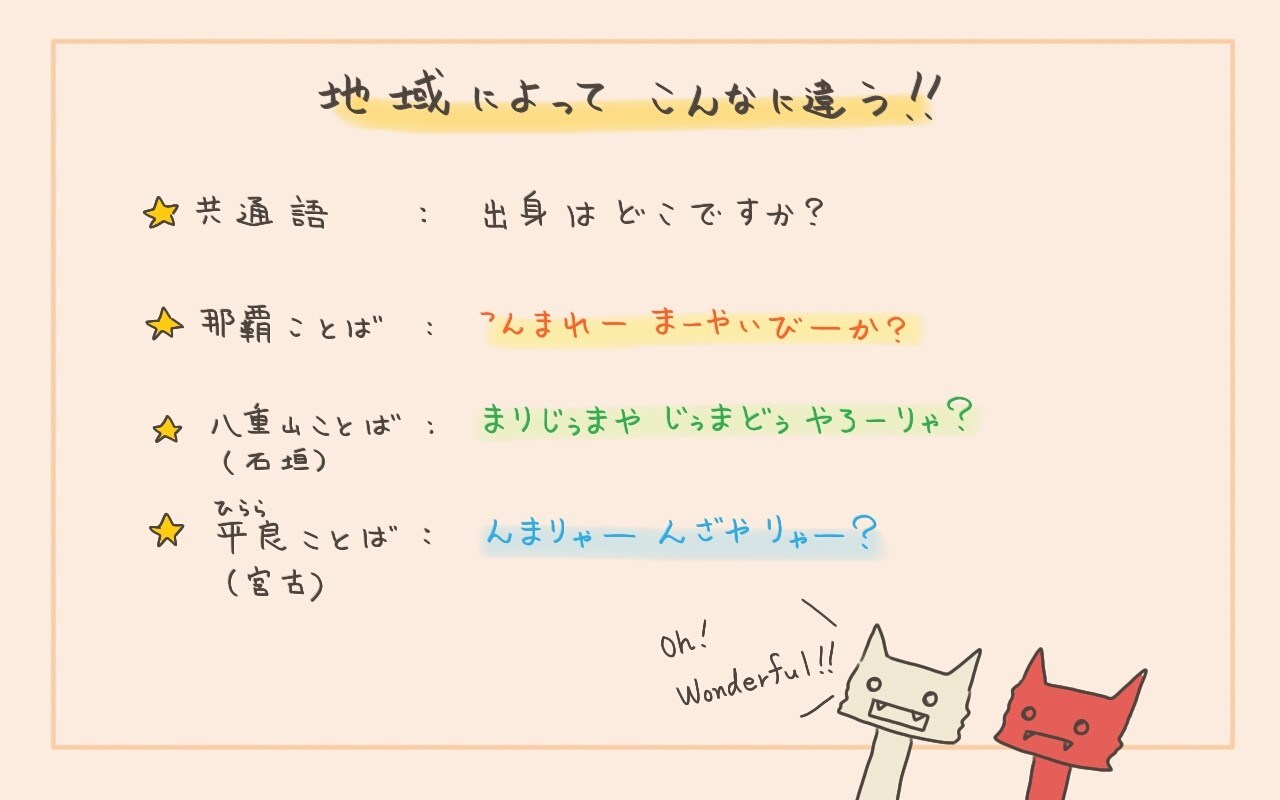 地域によって こんなに違う!!
共通語 : 出身はどこですか?
那覇ことば : っんまれー まーやいびーか?
八重山ことば : まりじぅまや じぅまどぅ やろーりゃ?
(石垣)
ひらら
平良ことば : んまりゃー んざやりゃー?
(宮古)
Oh!
Wonderful!!